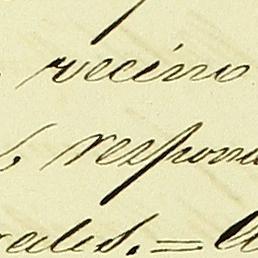 vecino
respon
rales. =